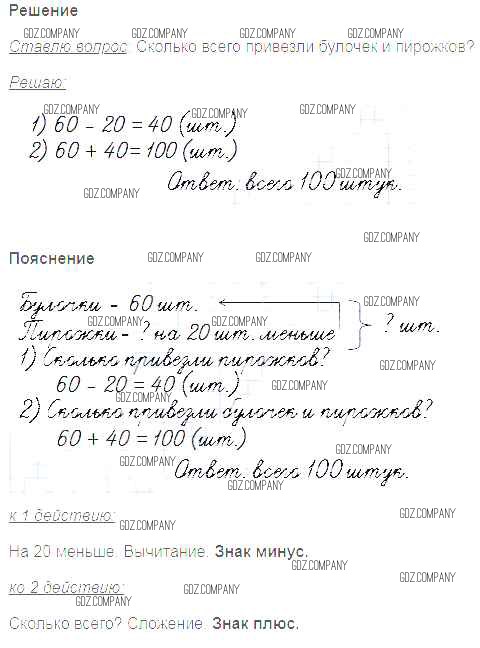 Решение
GDZ.COMPANY GDZ.COMPANY GDZ.COMPANY GDZ.COMPANY
Ставлю вопрос: Сколько всего привезли булочек и пирожков?
Решаю:
GDZ.COMPANY GDZ.COMPANY GDZ.COMPANY
1) 60 - 20 = 40 (шт.)
2) 60 + 40 = 100 (шт.)
GDZ.COMPANY
Ответ: всего 100 штук.
GDZ.COMPANY
GDZ.COMPANY
Пояснение GDZ.COMPANY GDZ.COMPANY
Булочки - 60 шт.
GDZ.COMPANY
? шт.
GDZ.COMPANY GDZ.COMPANY
Пирожки - ? на 20 шт. меньше
1) Сколько привезли пирожков?
GDZ.COMPANY
60 - 20 = 40 (шт.)
GDZ.COMPANY
GDZ.COMPANY
2) Сколько привезли булочек и пирожков?
60 + 40 = 100 (шт.)
GDZ.COMPANY
GDZ.COMPANY
Ответ: всего 100 штук.
GDZ.COMPANY
к 1 действию:
GDZ.COMPANY GDZ.COMPANY
На 20 меньше. Вычитание. Знак минус.
GDZ.COMPANY
GDZ.COMPANY
ко 2 действию:
GDZ.COMPANY
Сколько всего? Сложение. Знак плюс.